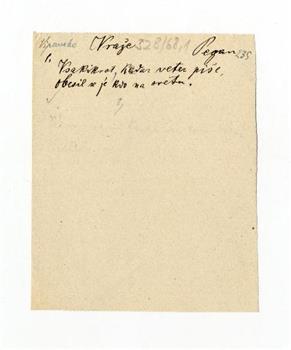 Vipavsko Vraže 328/68,1 Pegan 235
1. Vsakikrat, kadar veter piše,
obesil se je kdo na svetu.